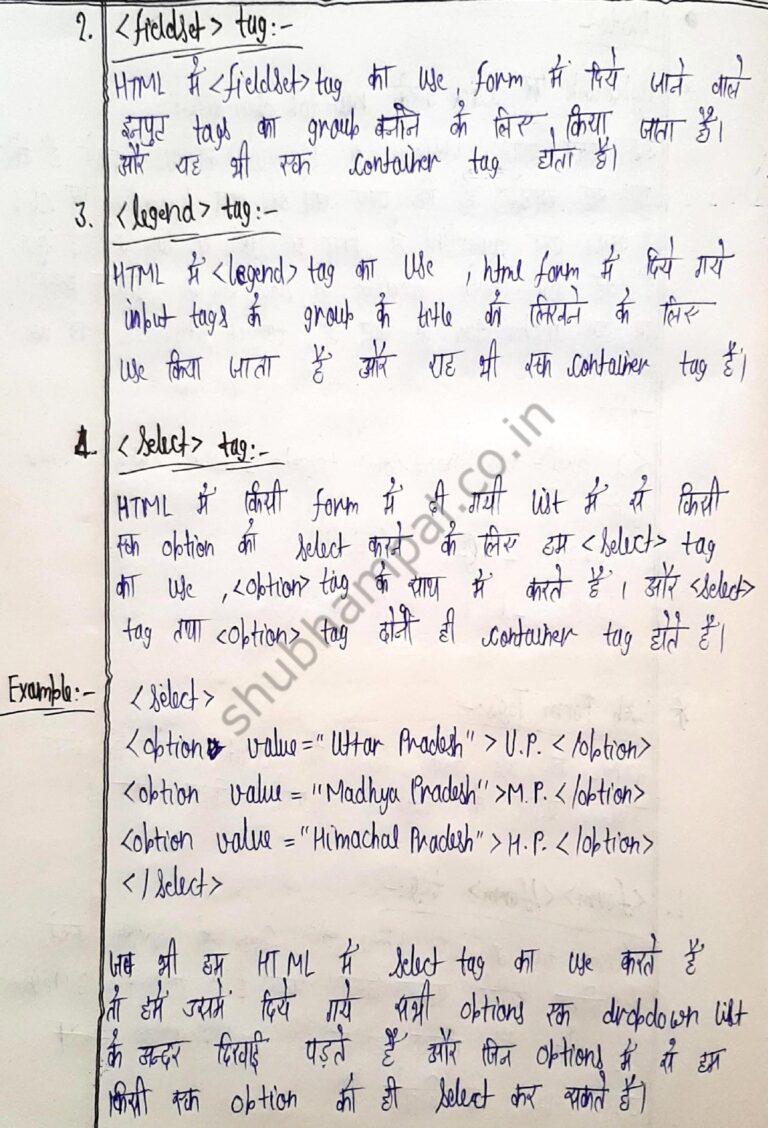 2. <fieldset> tag:-
HTML में <fieldset> tag का use, form में दिये जाने वाले
इनपुट tags का group बनाने के लिए किया जाता है।
और यह भी एक container tag होता है।
3. <legend> tag:-
HTML में <legend> tag का use, html form में दिये गये
input tags के group के title को लिखने के लिए
use किया जाता है और यह भी एक container tag है।
4. <select> tag:-
HTML में किसी form में दी गयी list में से किसी
एक option को select करने के लिए हम <select> tag
का use, <option> tag के साथ में करते हैं। और <select>
tag तथा <option> tag दोनों ही container tag होते हैं।
Example:- <select>
<option value="Uttar Pradesh">U.P.</option>
<option value="Madhya Pradesh">M.P.</option>
<option value="Himachal Pradesh">H.P.</option>
</select>
जब भी हम HTML में select tag का use करते हैं
तो हमें उसमें दिये गये सभी options एक dropdown list
के अन्दर दिखाई पड़ते हैं और जिन options में से हम
किसी एक option को ही select कर सकते हैं।
shubhampal.co.in